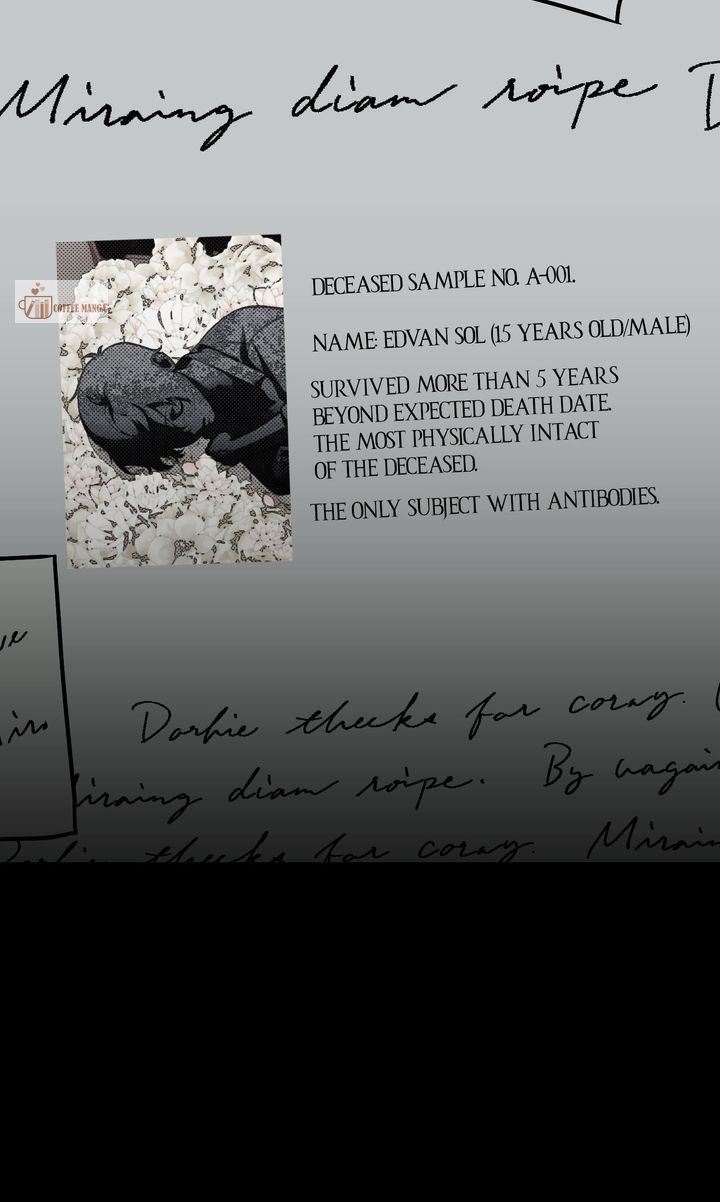 Miraing diam roipe
COFFEE MANGA
DECEASED SAMPLE NO. A-001.
NAME: EDVAN SOL (15 YEARS OLD/MALE)
SURVIVED MORE THAN 5 YEARS
BEYOND EXPECTED DEATH DATE.
THE MOST PHYSICALLY INTACT
OF THE DECEASED.
THE ONLY SUBJECT WITH ANTIBODIES.
Dorhie thecks for coray.
diam roipe. By
thecks for coray.